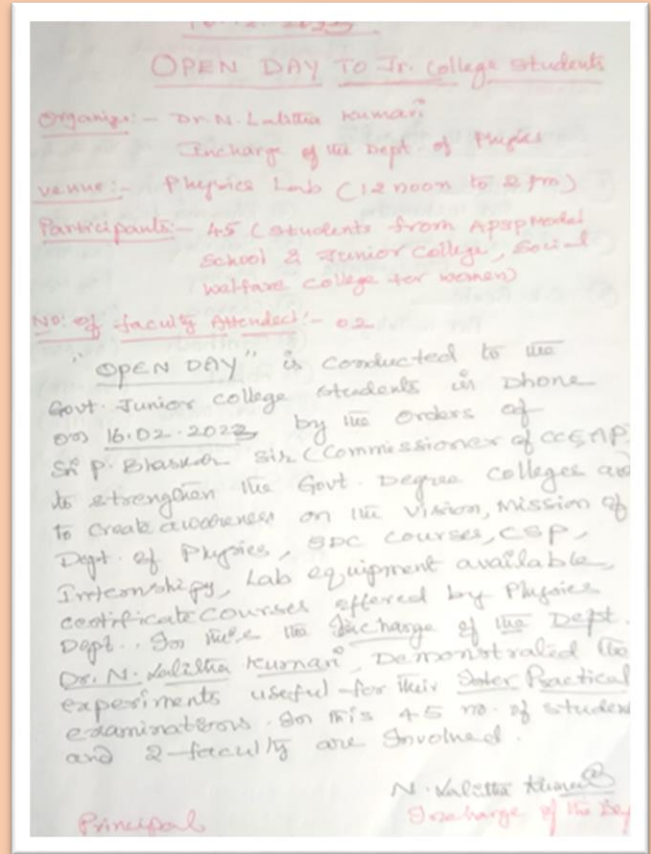 16.02.2023
OPEN DAY TO Jr. College Students
Organizer:- Dr. N. Lalitha Kumari
Incharge of the Dept. of Physics
Venue:- Physics Lab (12 noon to 2 pm)
Participants:- 45 (Students from APSP Model
School & Junior College, Social
welfare college for women)
No: of faculty Attended:- 02
"OPEN DAY" is conducted to the
Govt. Junior college students in Dhone
on 16.02.2023 by the orders of
Sri P. Bhaskar Sir (Commissioner of CCEAP
to strengthen the Govt. Degree colleges and
to create awareness on the Vision, Mission of
Dept. of Physics, SDC courses, CSP,
Internships, Lab equipment available,
certificate courses offered by Physics
Dept.. In this the Incharge of the Dept.
Dr. N. Lalitha Kumari, Demonstrated the
experiments useful for their Inter Practical
examinations. In this 45 no. of student
and 2-faculty are Involved.
N. Lalitha Kumari
Principal
Incharge of the